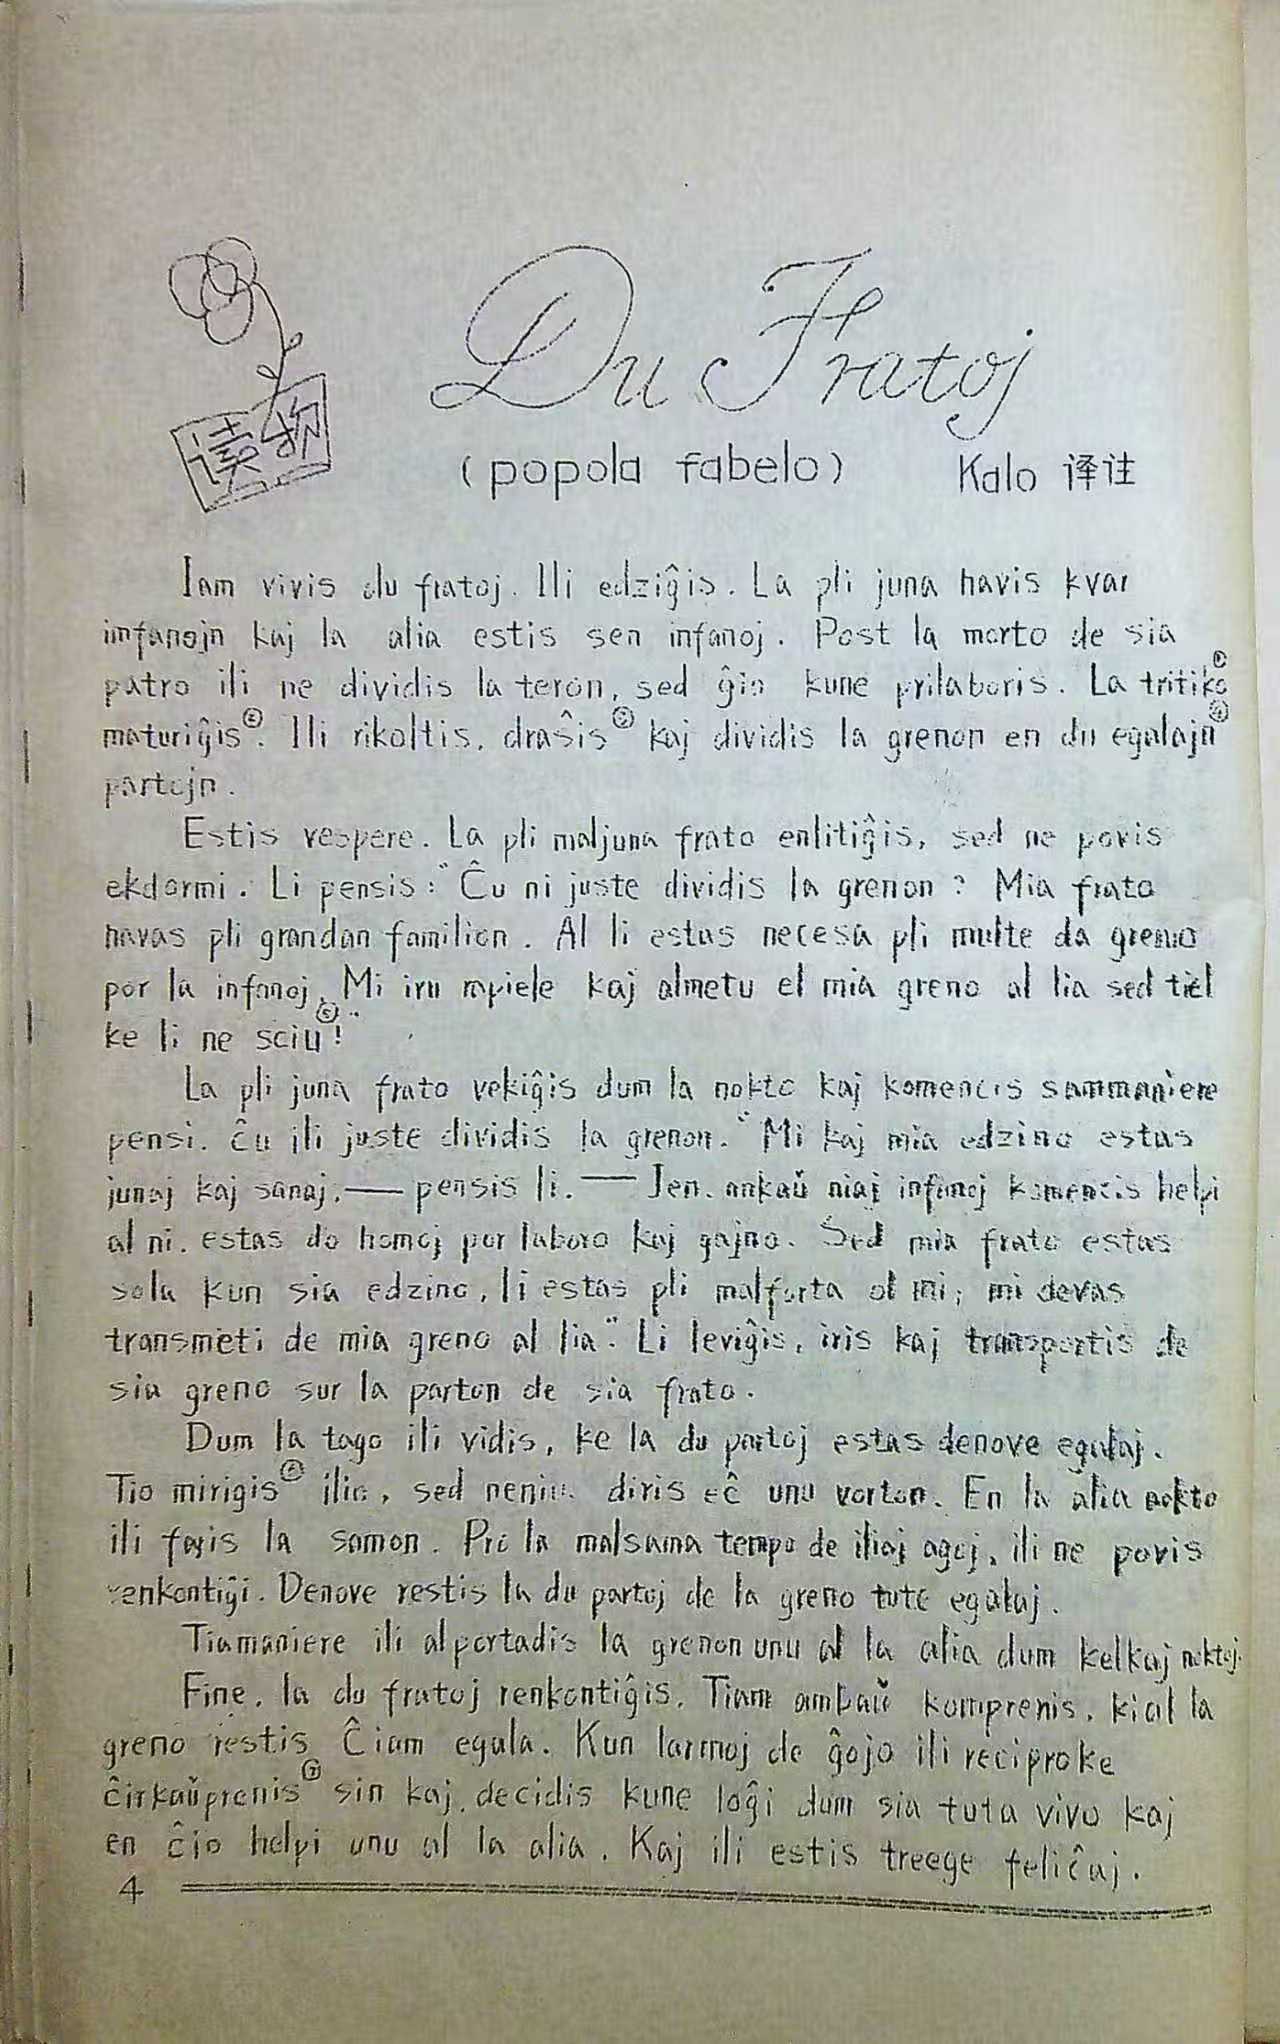 读物
Du Fratoj
(popola fabelo) Kalo 译注
Iam vivis du fratoj. Ili edziĝis. La pli juna havis kvar
infanojn kaj la alia estis sen infanoj. Post la morto de sia
patro ili ne dividis la teron, sed ĝin kune prilaboris. La tritiko①
maturiĝis②. Ili rikoltis, draŝis③ kaj dividis la grenon en du egalajn④
partojn.
Estis vespere. La pli maljuna frato enlitiĝis, sed ne povis
ekdormi. Li pensis: "Ĉu ni juste dividis la grenon? Mia frato
havas pli grandan familion. Al li estas necesa pli multe da greno
por la infanoj. Mi iru kaj almetu el mia greno al lia sed tiel
ke li ne sciu⑤!"
La pli juna frato vekiĝis dum la nokto kaj komencis sammaniere
pensi. ĉu ili juste dividis la grenon. "Mi kaj mia edzino estas
junaj kaj sanaj, — pensis li. — Jen, ankaŭ niaj infanoj komencis helpi
al ni. estas do homoj por laboro kaj gajno. Sed mia frato estas
sola kun sia edzino, li estas pli malforta ol mi; mi devas
transmeti de mia greno al lia". Li leviĝis, iris kaj transportis de
sia greno sur la parton de sia frato.
Dum la tago ili vidis, ke la du partoj estas denove egalaj.
Tio mirigis⑥ ilin, sed neniu diris eĉ unu vorton. En la alia nokto
ili faris la samon. Pro la malsama tempo de iliaj agoj, ili ne povis
renkontiĝi. Denove restis la du partoj de la greno tute egalaj.
Tiamaniere ili alportadis la grenon unu al la alia dum kelkaj noktoj.
Fine, la du fratoj renkontiĝis. Tiam ambaŭ komprenis, kial la
greno restis Ĉiam egala. Kun larmoj de ĝojo ili reciproke
ĉirkaŭprenis⑦ sin kaj decidis kune loĝi dum sia tuta vivo kaj
en ĉio helpi unu al la alia. Kaj ili estis treege feliĉaj.
4